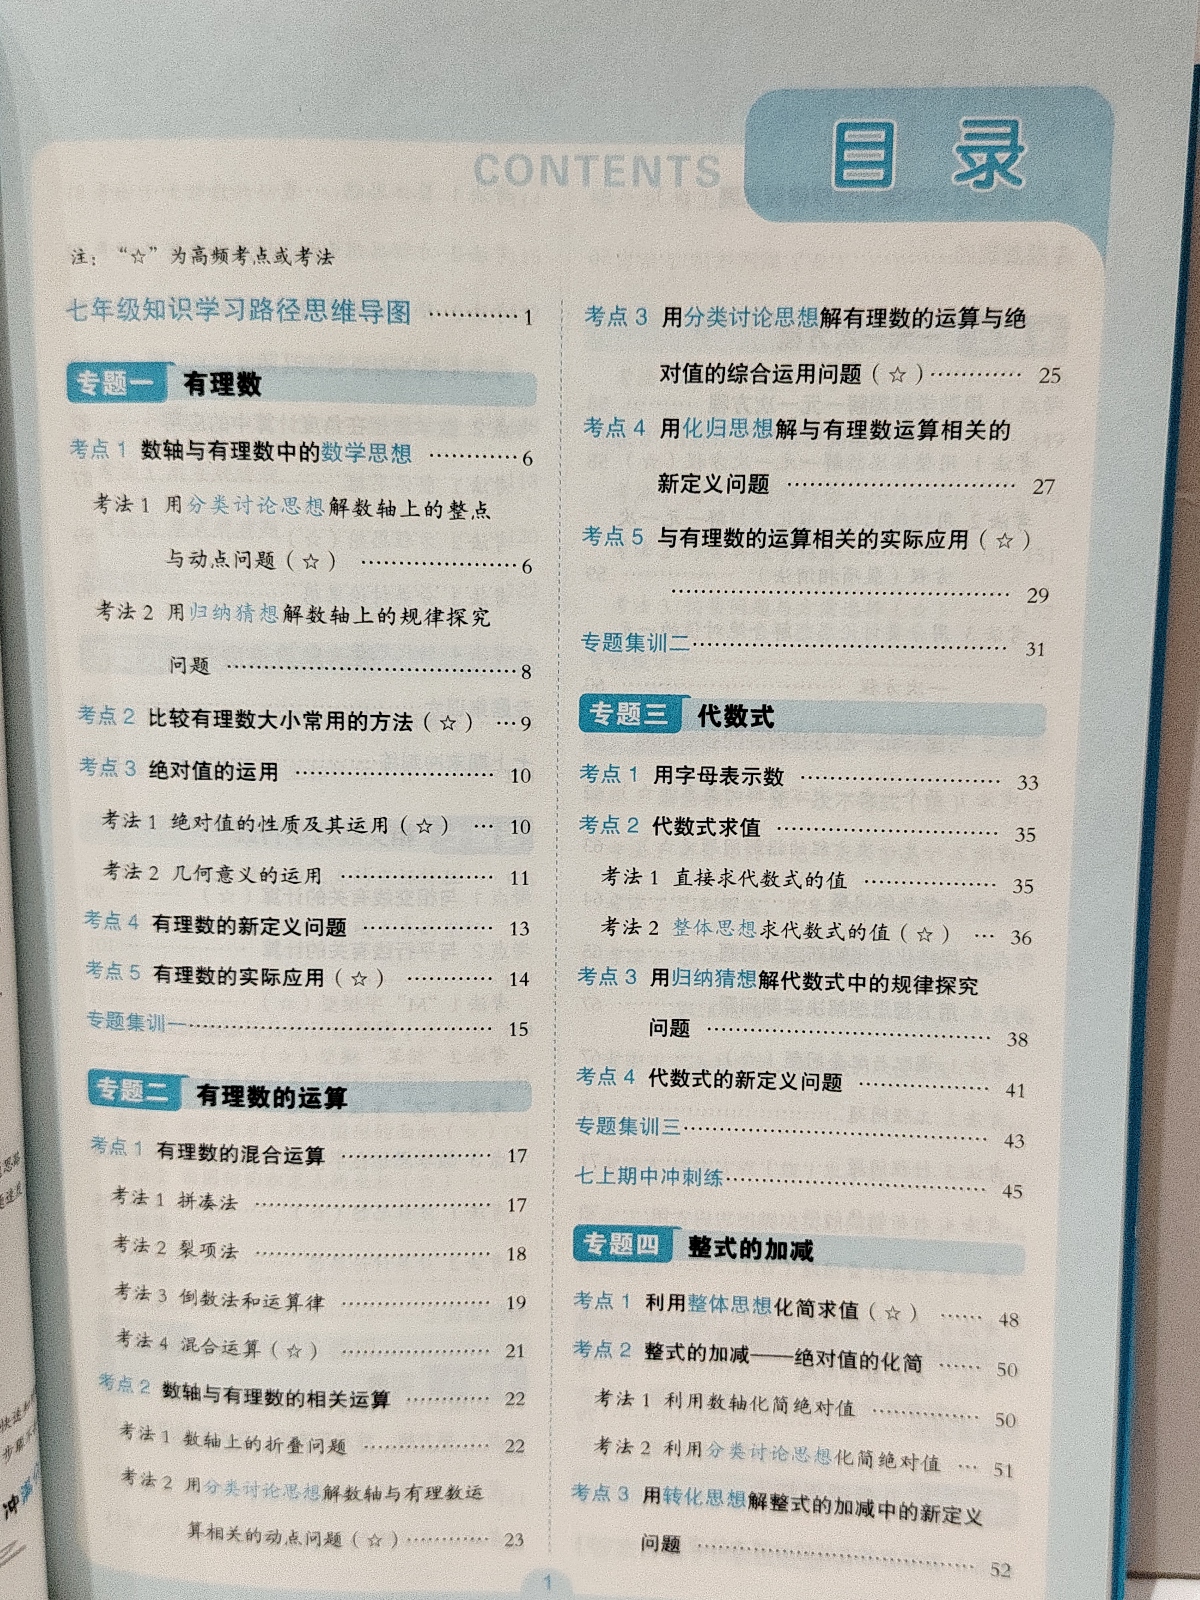 目 录
CONTENTS
注：“☆”为高频考点或考法
七年级知识学习路径思维导图 …………1
专题一 有理数
考点1 数轴与有理数中的数学思想 …………6
考法1 用分类讨论思想解数轴上的整点
与动点问题（☆） …………………6
考法2 用归纳猜想解数轴上的规律探究
问题 …………………………………8
考点2 比较有理数大小常用的方法（☆） …9
考点3 绝对值的运用 ………………………… 10
考法1 绝对值的性质及其运用（☆） … 10
考法2 几何意义的运用 ………………… 11
考点4 有理数的新定义问题 ……………… 13
考点5 有理数的实际应用（☆） ………… 14
专题集训一………………………………… 15
专题二 有理数的运算
考点1 有理数的混合运算 ………………… 17
考法1 拼凑法 …………………………… 17
考法2 裂项法 …………………………… 18
考法3 倒数法和运算律 ………………… 19
考法4 混合运算（☆） ………………… 21
考点2 数轴与有理数的相关运算 ………… 22
考法1 数轴上的折叠问题 ……………… 22
考法2 用分类讨论思想解数轴与有理数运
算相关的动点问题（☆）………… 23
考点3 用分类讨论思想解有理数的运算与绝
对值的综合运用问题（☆）………… 25
考点4 用化归思想解与有理数运算相关的
新定义问题 ………………………… 27
考点5 与有理数的运算相关的实际应用（☆）
……………………………………… 29
专题集训二………………………………… 31
专题三 代数式
考点1 用字母表示数 ……………………… 33
考点2 代数式求值 ………………………… 35
考法1 直接求代数式的值 ……………… 35
考法2 整体思想求代数式的值（☆） … 36
考点3 用归纳猜想解代数式中的规律探究
问题 ………………………………… 38
考点4 代数式的新定义问题 ……………… 41
专题集训三………………………………… 43
七上期中冲刺练…………………………… 45
专题四 整式的加减
考点1 利用整体思想化简求值（☆） …… 48
考点2 整式的加减——绝对值的化简 …… 50
考法1 利用数轴化简绝对值 …………… 50
考法2 利用分类讨论思想化简绝对值 … 51
考点3 用转化思想解整式的加减中的新定义
问题 ………………………………… 52
1